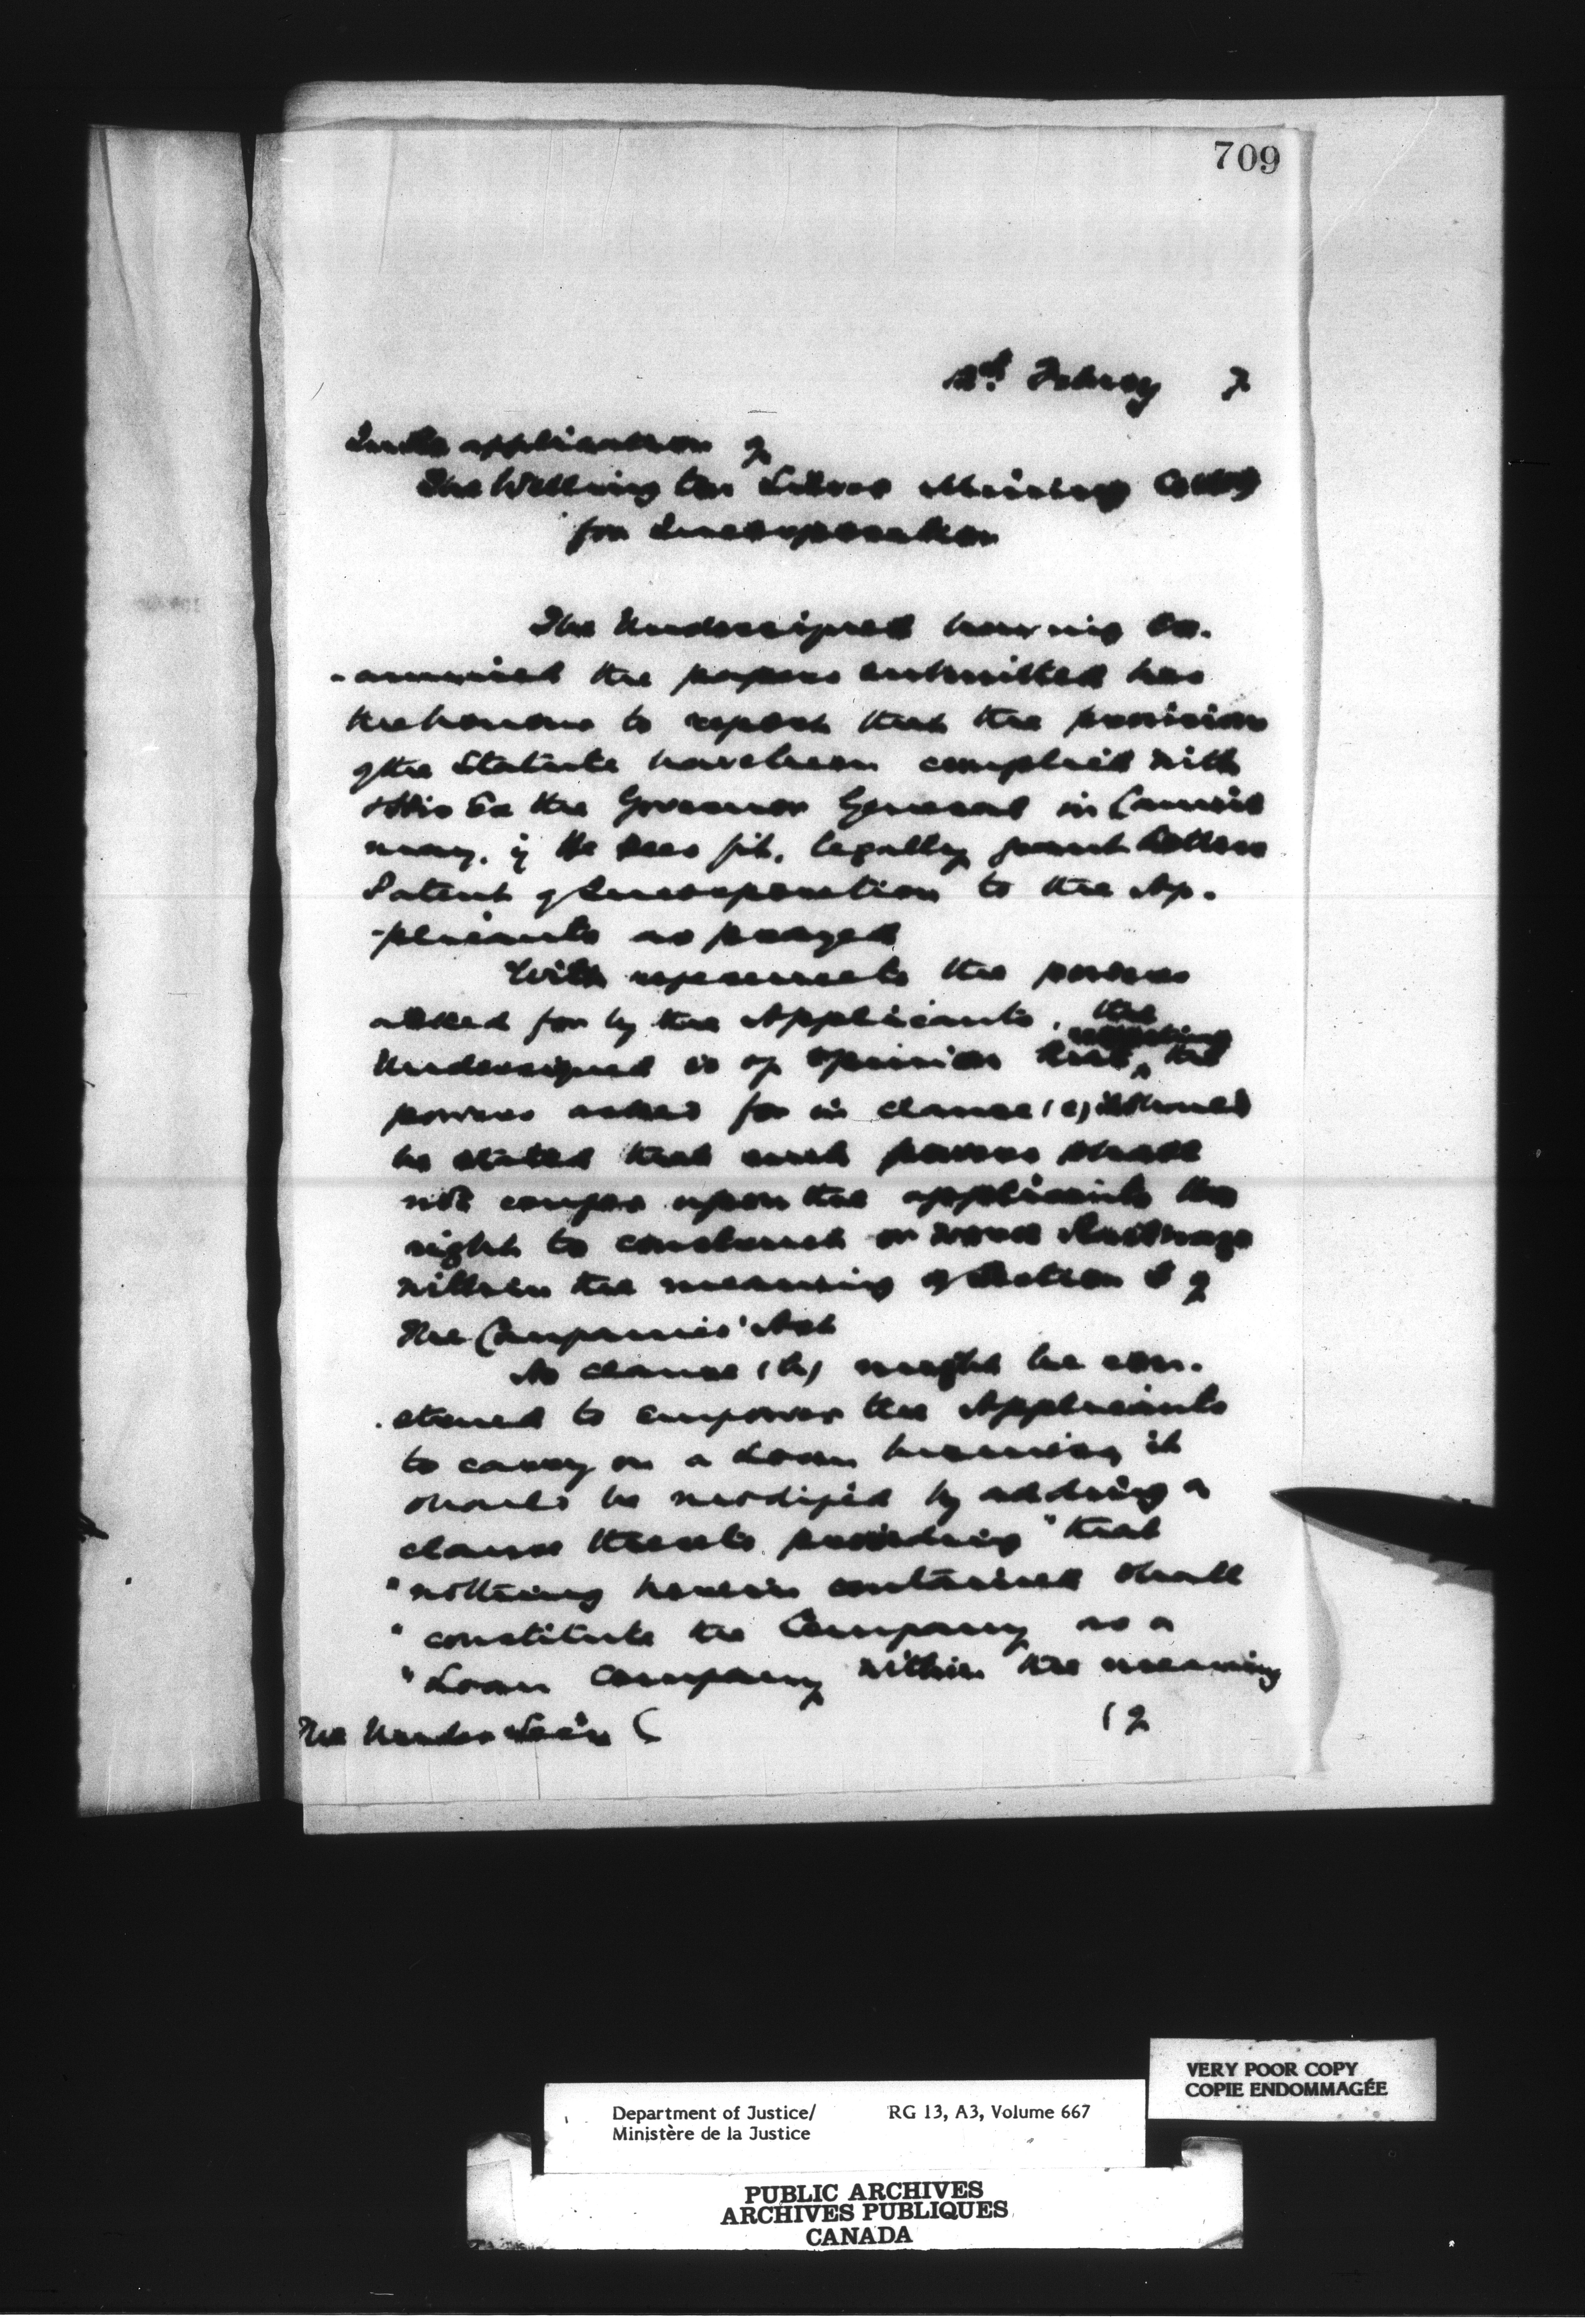 709
2nd Febray 7
In the application of
The Wellington Silver Mining Coy
for Incorporation
The Undersigned having Ex-
-amined the papers submitted has
the honour to report that the provisions
of the Statute have been complied with
& His Ex the Governor General in Council
may, if He sees fit, legally grant Letters
Patent of Incorporation to the Ap-
-plicants as prayed
With respect to the powers
asked for by the Applicants, the
Undersigned is of opinion that respecting the
powers asked for in clause (e) it should
be stated that such powers shall
not confer upon the applicants the
right to construct or work Railways
within the meaning of Section 5 of
The Companies' Act
As clause (h) might be con-
-strued to empower the Applicants
to carry on a Loan business it
should be modified by adding a
clause thereto providing "that
"nothing herein contained shall
"constitute the Company as a
"Loan Company within the meaning
The Under Secy (
( of
VERY POOR COPY
COPIE ENDOMMAGÉE
Department of Justice/ RG 13, A3, Volume 667
Ministère de la Justice
PUBLIC ARCHIVES
ARCHIVES PUBLIQUES
CANADA